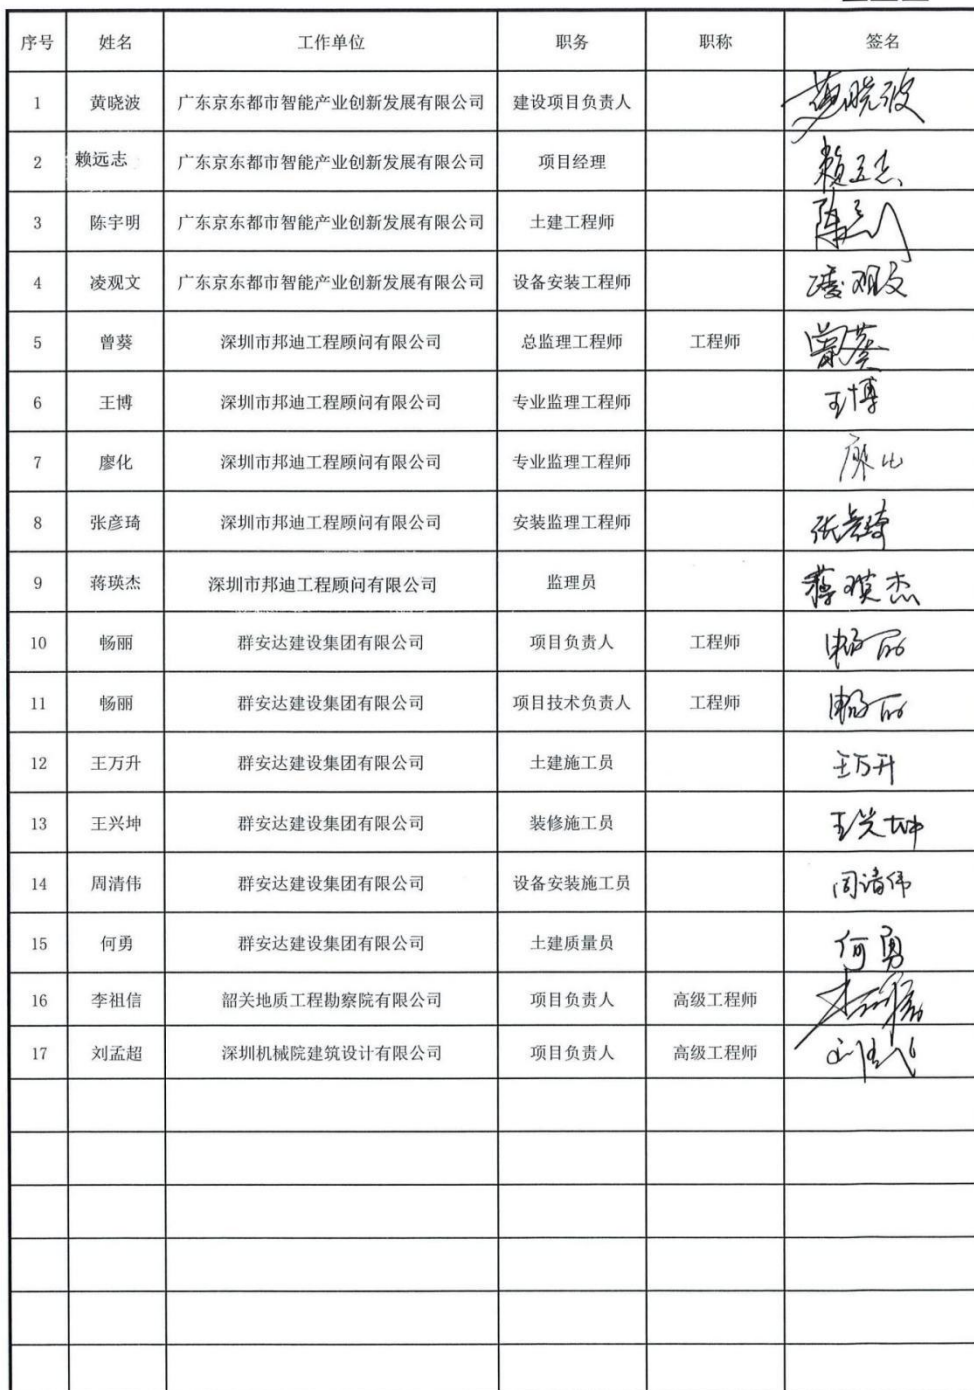 序号 姓名 工作单位 职务 职称 签名
1 黄晓波 广东京东都市智能产业创新发展有限公司 建设项目负责人 黄晓波
2 赖远志 广东京东都市智能产业创新发展有限公司 项目经理
3 陈宇明 广东京东都市智能产业创新发展有限公司 土建工程师
4 凌观文 广东京东都市智能产业创新发展有限公司 设备安装工程师 凌观文
5 曾葵 深圳市邦迪工程顾问有限公司 总监理工程师 工程师 曾葵
6 王博 深圳市邦迪工程顾问有限公司 专业监理工程师 王博
7 廖化 深圳市邦迪工程顾问有限公司 专业监理工程师 廖化
8 张彦琦 深圳市邦迪工程顾问有限公司 安装监理工程师 张彦琦
9 蒋瑛杰 深圳市邦迪工程顾问有限公司 监理员 蒋瑛杰
10 畅丽 群安达建设集团有限公司 项目负责人 工程师 畅丽
11 畅丽 群安达建设集团有限公司 项目技术负责人 工程师 畅丽
12 王万升 群安达建设集团有限公司 土建施工员 王万升
13 王兴坤 群安达建设集团有限公司 装修施工员 王兴坤
14 周清伟 群安达建设集团有限公司 设备安装施工员 周清伟
15 何勇 群安达建设集团有限公司 土建质量员 何勇
16 李祖信 韶关地质工程勘察院有限公司 项目负责人 高级工程师
17 刘孟超 深圳机械院建筑设计有限公司 项目负责人 高级工程师